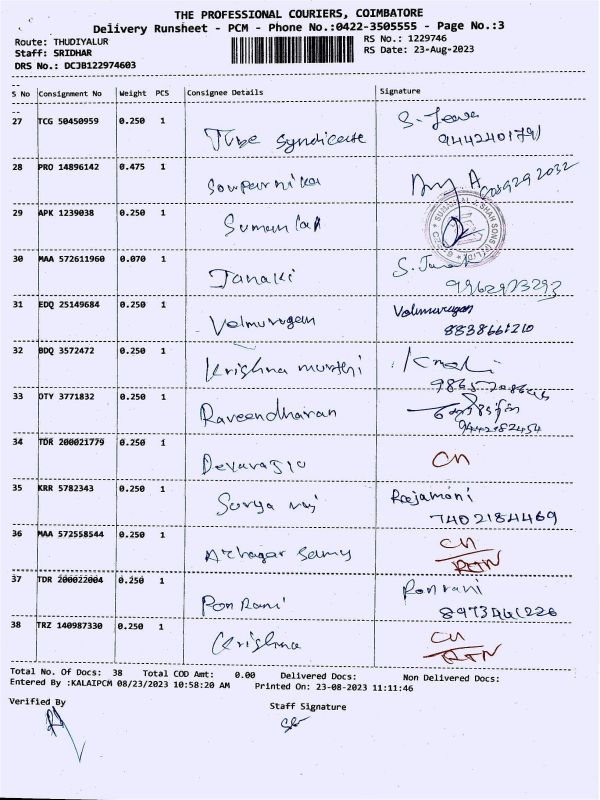 THE PROFESSIONAL COURIERS, COIMBATORE
Delivery Runsheet - PCM - Phone No.:0422-3505555 - Page No.:3
Route: THUDIYALUR
RS No.: 1229746
Staff: SRIDHAR
RS Date: 23-Aug-2023
DRS No.: DCJB122974603
S No Consignment No Weight PCS Consignee Details Signature
27 TCG 50450959 0.250 1 Tube Syndicate
28 PRO 14896142 0.475 1 Souparnika
29 APK 1239038 0.250 1
30 MAA 572611960 0.070 1 Janaki
31 EDQ 25149684 0.250 1 Velmurugan Velmurugan
8838661210
32 BDQ 3572472 0.250 1 Krishna murthi
33 OTY 3771832 0.250 1 Raveendharan
9442182454
34 TDR 200021779 0.250 1 Devaraju CN
35 KRR 5782343 0.250 1 Surya Rajamani
7402184469
36 MAA 572558544 0.250 1 Azhagar Samy CN
RTN
37 TDR 200022004 0.250 1 Pon Rani Ponrani
38 TRZ 140987330 0.250 1 Krishna CN
RTN
Total No. Of Docs: 38 Total COD Amt: 0.00 Delivered Docs: Non Delivered Docs:
Entered By :KALAIPCM 08/23/2023 10:58:20 AM Printed On: 23-08-2023 11:11:46
Verified By
Staff Signature